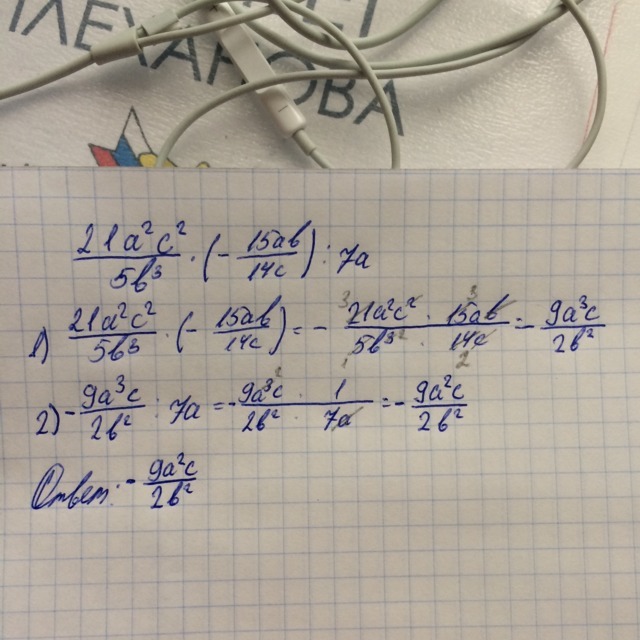 ПЛЕХАНОВА
21a²c²/5b³ · (− 15ab/14c) : 7a
1) 21a²c²/5b³ · (− 15ab/14c) = − 21a²c² · 15ab/5b³ · 14c = − 9a³c/2b²
2) − 9a³c/2b² : 7a = − 9a³c/2b² · 1/7a = − 9a²c/2b²
Ответ: − 9a²c/2b²